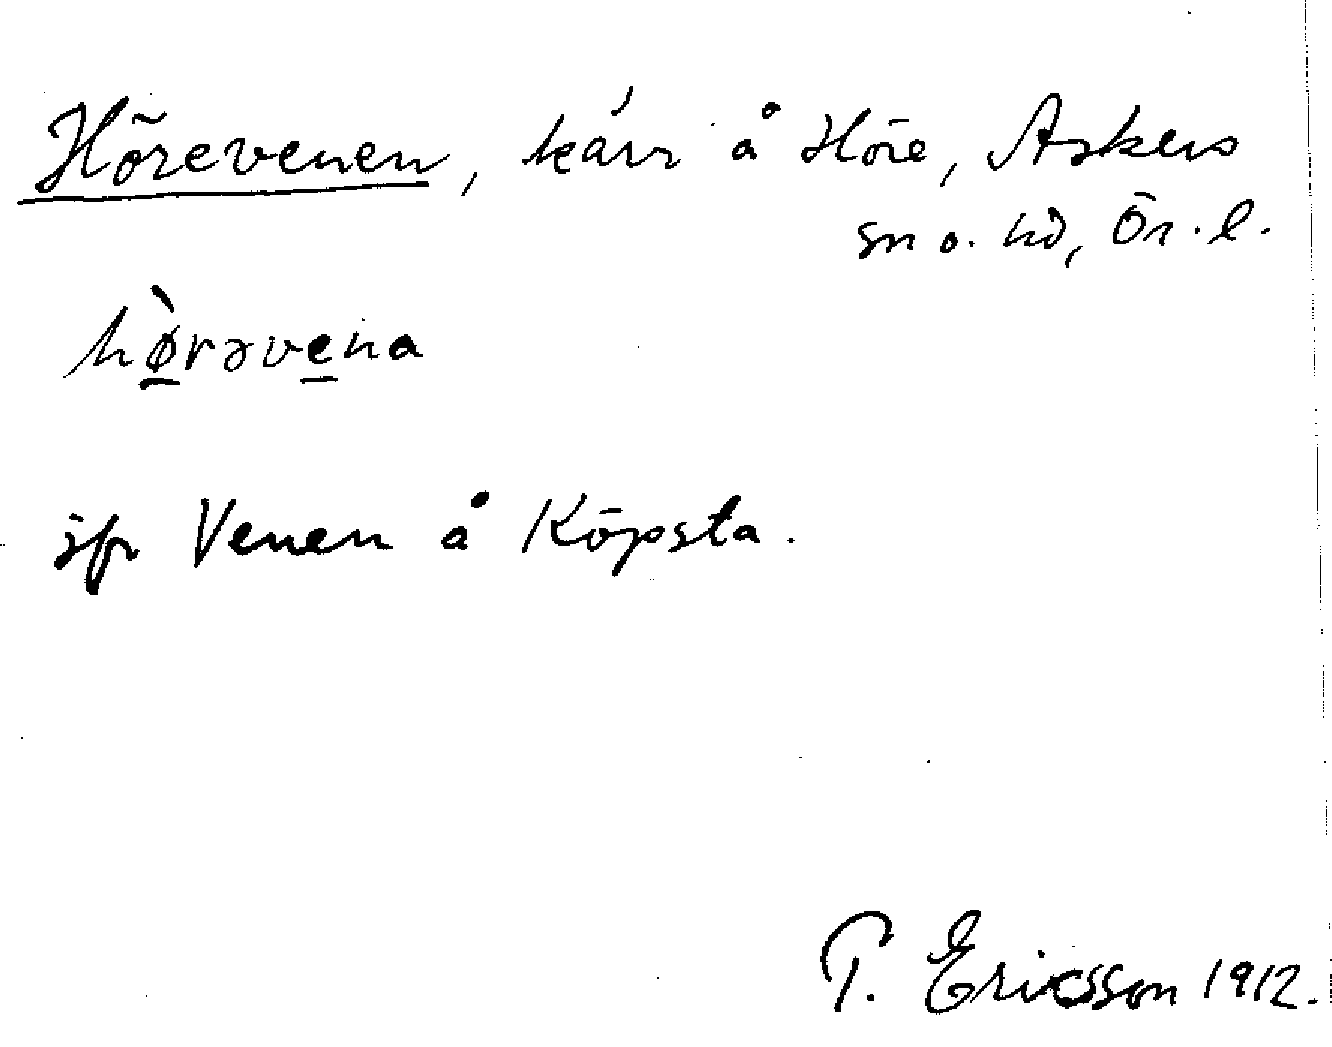 Hörevenen, kärr å Höre, Askers
sn o. hd, Ör. l.
hø̱̀rəve̱na
jfr Venen å Köpsta.
T. Ericsson 1912.